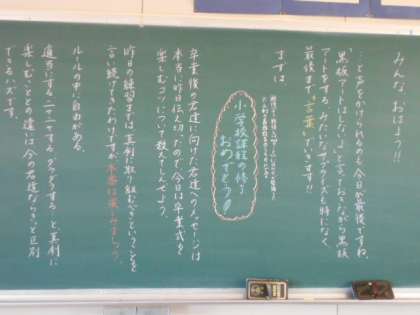 みんな、おはよう!!
…と声をかけられるのも今日が最後ですね。
「黒板アートはしない」と言っておきながら黒板
アートをする、みたいなサプライズも特になく、
最後まで「言葉」でいきます!!
まずは
小学校課程の修了
おめでとう
卒業後の君達に向けた君達へのメッセージは
本番前昨日伝え切ったので今日は卒業式を
楽しむコツについて教えてしんぜよう。
昨日の練習までは真剣に取り組むべきということを
言い続けてきたわけですが、本番は楽しみましょう。
ルールの中に自由がある。
適当にする、ニヤニヤする、グラグラする…と真剣に
楽しむことの違いは今の君達ならきっと区別
できるハズです。